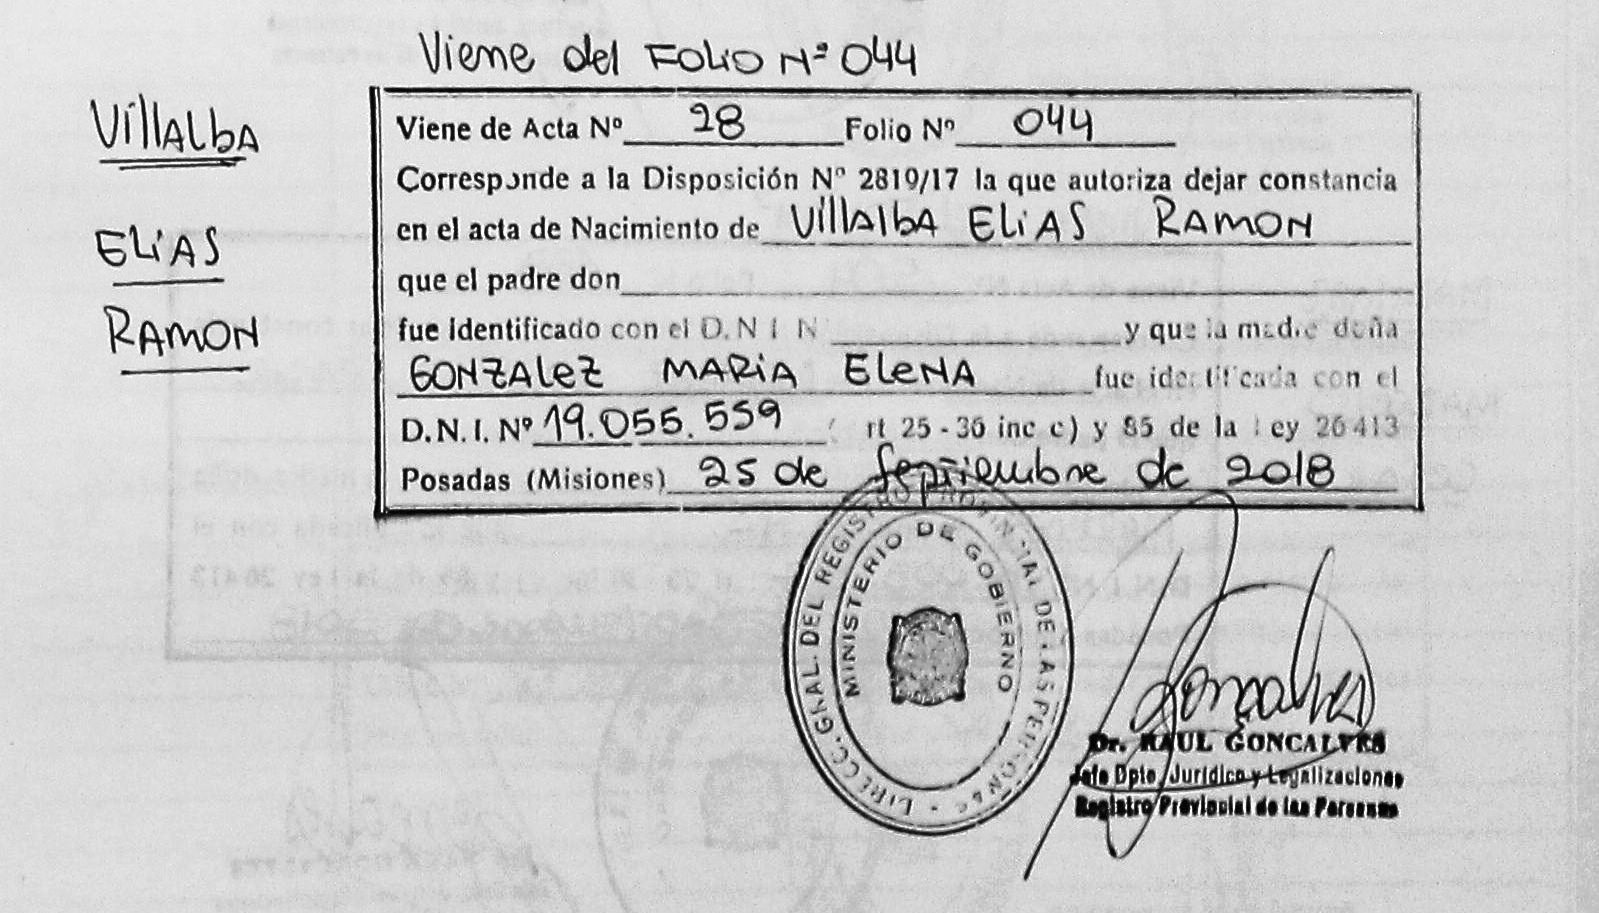 Viene del FOLIO Nº 044
VillAlbA
ELiAS
RAMON
Viene de Acta Nº 28 Folio Nº 044
Corresponde a la Disposición Nº 2819/17 la que autoriza dejar constancia
en el acta de Nacimiento de VillAlbA ELiAS RAMON
que el padre don
fue Identificado con el D.N I N y que la madre doña
GONZAleZ MARiA EleNA fue identificada con el
D.N.I. Nº 19.055.559 rt 25 - 36 inc c) y 85 de la ley 26413
Posadas (Misiones) 25 de septiembre de 2018
DIRECC. GRAL. DEL REGISTRO PROVINCIAL DE LAS PERSONAS
MINISTERIO DE GOBIERNO
Goncalves
Dr. RAUL GONCALVES
Jefe Dpto. Jurídico y Legalizaciones
Registro Provincial de las Personas